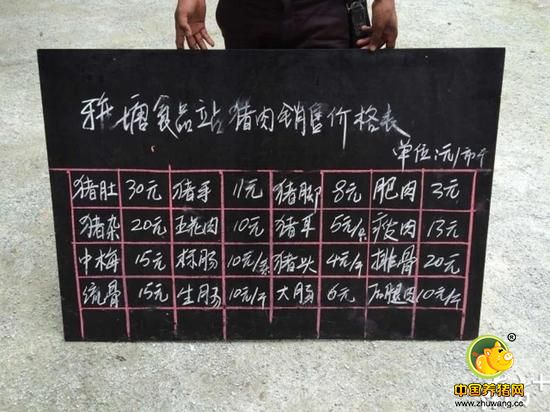 雅塘食品站猪肉销售价格表
单位:元/市斤
猪肚 30元 猪手 11元 猪脚 8元 肥肉 3元
猪杂 20元 五花肉 10元 猪耳 5元/ 瘦肉 13元
中梅 15元 粉肠 10元/条 猪头 4元/斤 排骨 20元
15元 生肠 10元/斤 大肠 6元 后腿肉 10元/斤
中国养猪网
www.zhuwang.cc
®